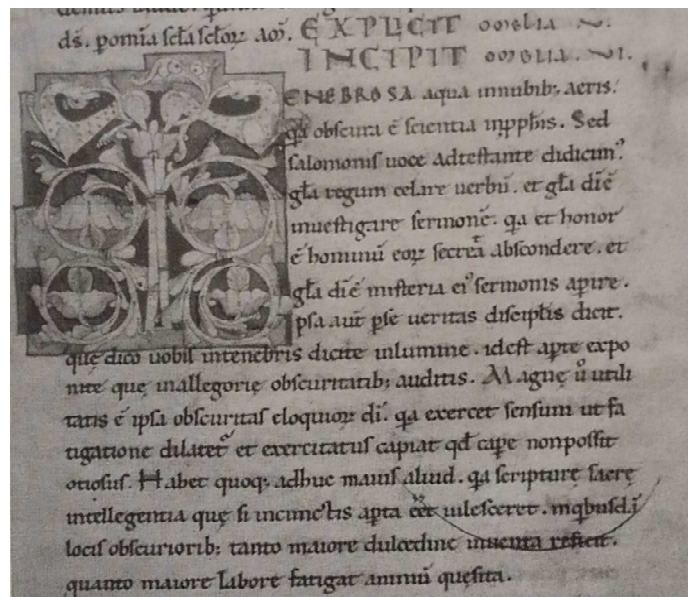 ds̄. p om̄ia sc̄la sc̄loꝝ am̄. EXPLICIT omelia V.
INCIPIT omelia. VI.
TENEBROSA aqua innubib; aeris.
qa obscura ē scientia inpphis. Sed
salomonis uoce adtestante didicim᾽.
gl̄a regum celare uerbū. et gl̄a dīē
inuestigare sermonē. qa et honor
ē hominū eoꝝ secreta abscondere. et
gl̄a dīē misteria ei᾽ sermonis apire.
Ipsa aut̄ p se ueritas discipl̄is dicit.
quę dico uobis intenebris dicite inlumine. idest apte expo
nite quę inallegorię obscuritatib; auditis. Magnę ů utili
tatis ē ipsa obscuritas eloquioꝝ dī. qa exercet sensum ut fa
tigatione dilatet᾽ et exercitatus capiat qd̄ cape nonpossit
otiosus. Habet quoq; adhuc maius aliud. qa scripturę sacrę
intellegentia quę si incunctis apta eēt uilesceret. inqbusdā
locis obscuriorib; tanto maiore dulcedine inuenta reficit.
quanto maiore labore fatigat animū quęsita.